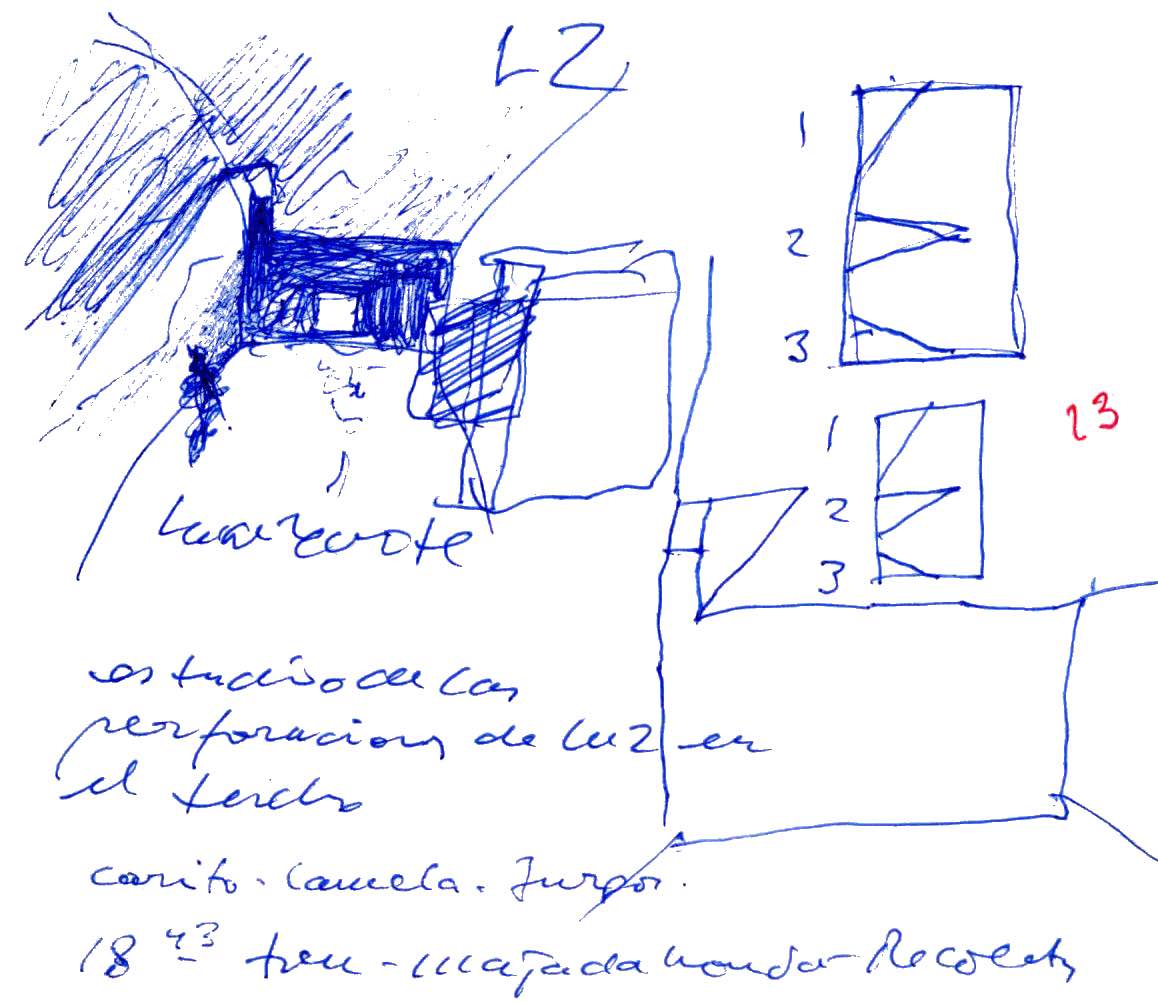 LZ
1
2
3
1
2
3
23
Lanzarote
estudio de las
perforaciones de luz en
el techo
carito. Camela.
18 43 tren - majadahonda - Recoletos